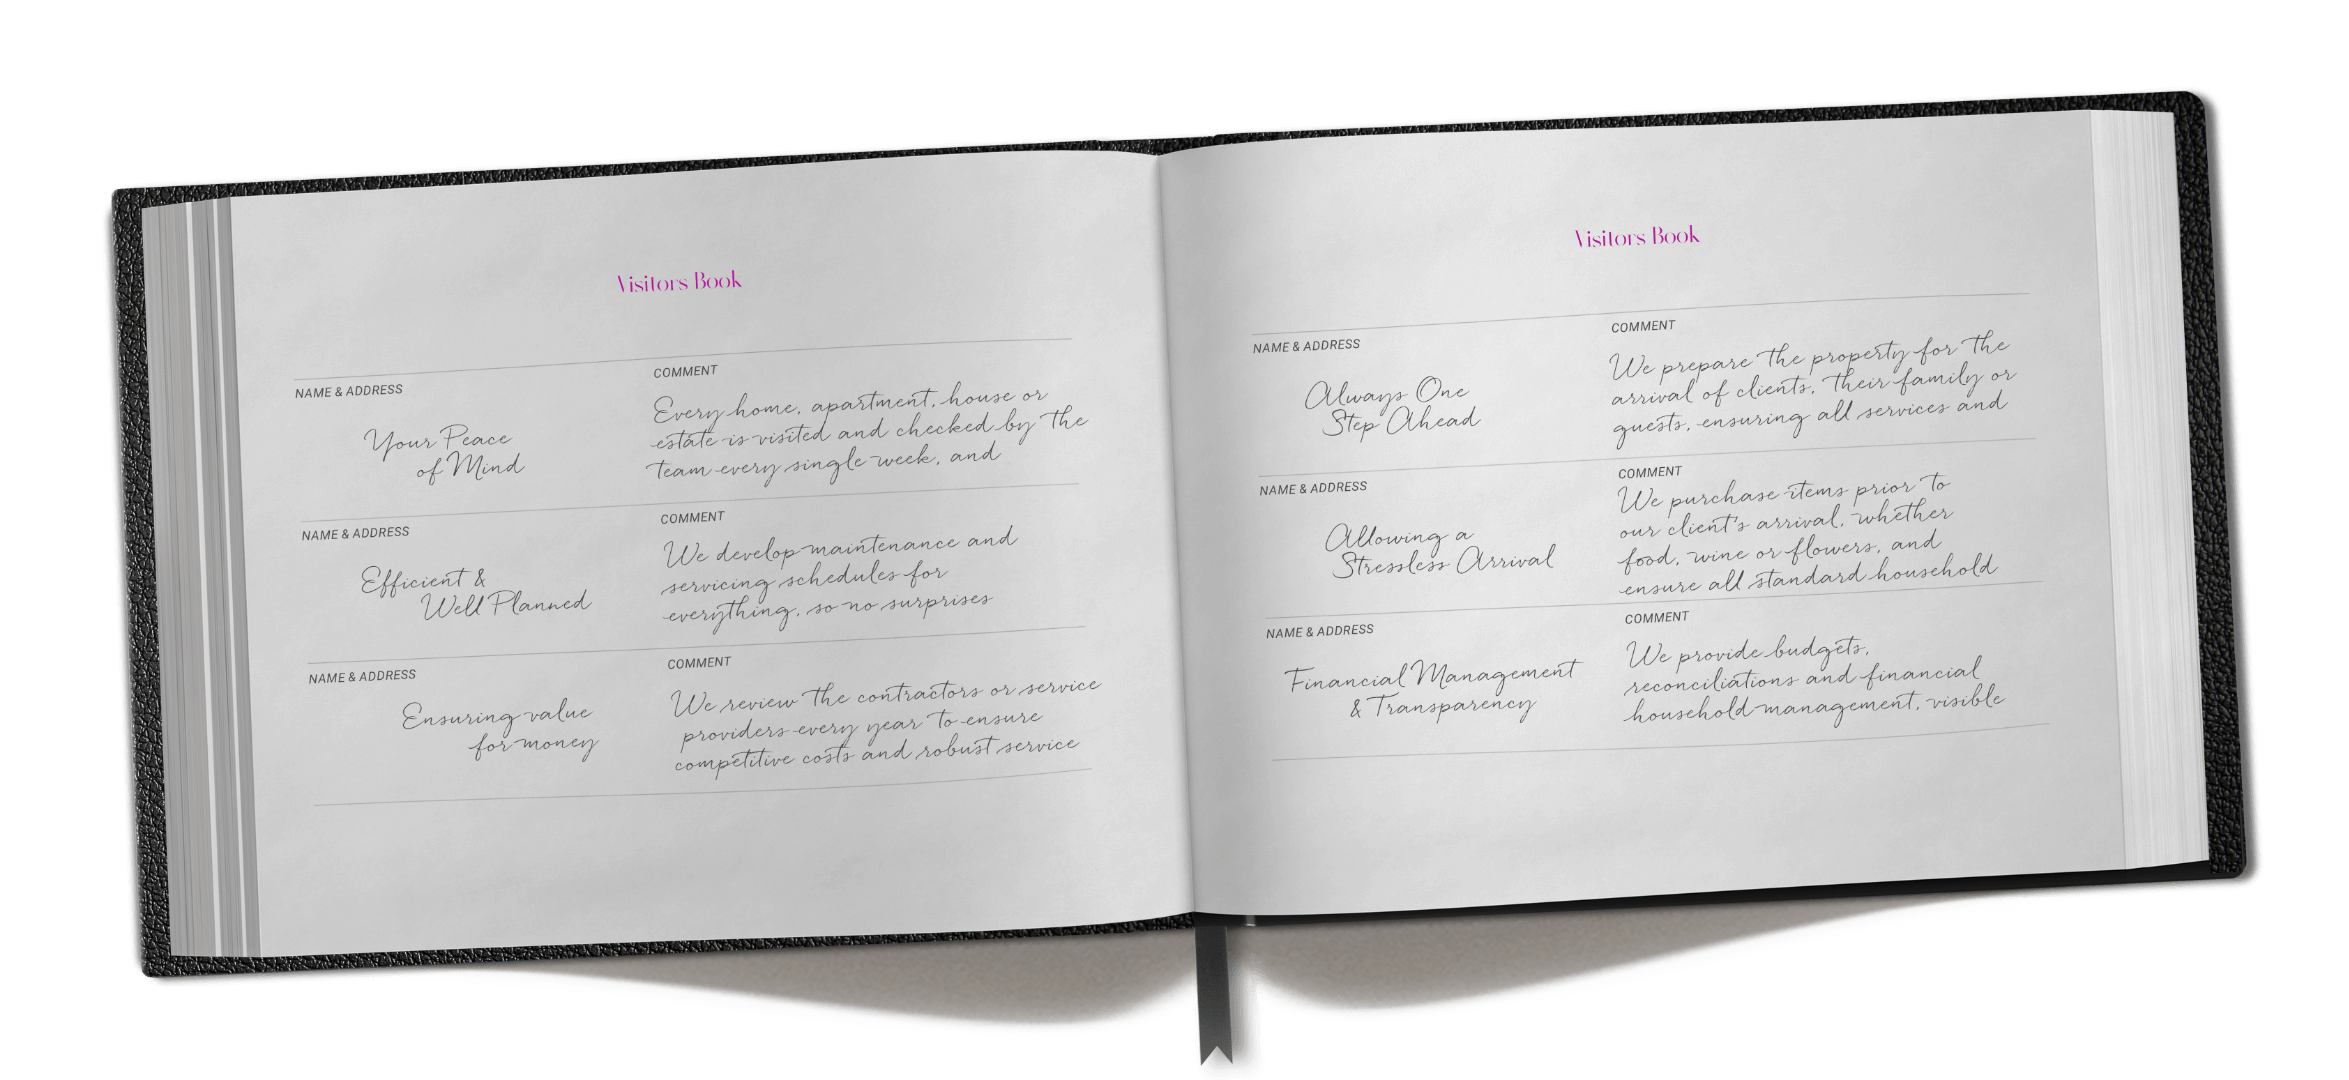 Visitors Book
NAME & ADDRESS
Your Peace
of Mind
COMMENT
Every home, apartment, house or
estate is visited and checked by the
team every single week, and
NAME & ADDRESS
Efficient &
Well Planned
COMMENT
We develop maintenance and
servicing schedules for
everything, so no surprises
NAME & ADDRESS
Ensuring value
for money
COMMENT
We review the contractors or service
providers every year to ensure
competitive costs and robust service
Visitors Book
NAME & ADDRESS
Always One
Step Ahead
COMMENT
We prepare the property for the
arrival of clients, their family or
guests, ensuring all services and
NAME & ADDRESS
Allowing a
Stressless Arrival
COMMENT
We purchase items prior to
our client's arrival, whether
food, wine or flowers, and
ensure all standard household
NAME & ADDRESS
Financial Management
& Transparency
COMMENT
We provide budgets,
reconciliations and financial
household management, visible